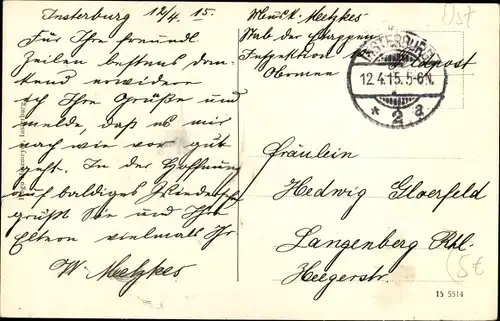 Insterburg 12/4. 15.
Für Ihre freundl.
Zeilen bestens dan-
kend erwidere
ich Ihre Grüße und
melde, daß es mir
nach wie vor gut
geht. In der Hoffnung
auf baldiges Wiederseh
grüßt Sie und Ihre
Eltern vielmals Ihr
W. Metzkes
Musk. Metzkes
Stab der Etappen
Inspektion
Feldpost
INSTERBURG
12.4.15.5-6N.
* 2 a
Fräulein
Hedwig Gloerfeld
Langenberg Rhl.
Heegerstr.
Ost
5€
15 5514